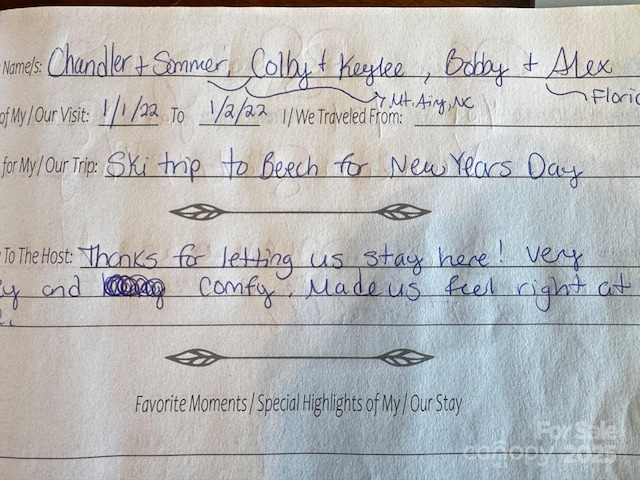 Name/s: Chandler + Sommer, Colby + Keylee, Bobby + Alex
Mt. Airy, NC Floric
of My / Our Visit: 1/1/22 To 1/2/22 I / We Traveled From:
for My / Our Trip: Ski trip to Beech for New Years Day
To The Host: Thanks for letting us stay here! Very
y and comfy. Made us feel right at
e.
Favorite Moments / Special Highlights of My / Our Stay
For Sale
canopy 2025